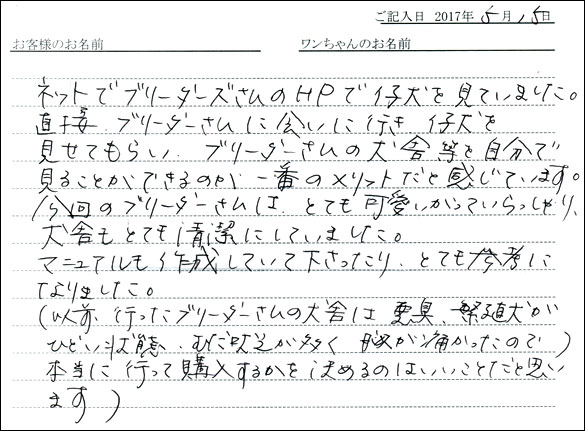 ご記入日 2017年 5月15日
お客様のお名前 ワンちゃんのお名前
ネットでブリーダーズさんのHPで仔犬を見ていました。
直接、ブリーダーさんに会いに行き 仔犬を
見せてもらい、ブリーダーさんの犬舎等を自分で
見ることができるのが一番のメリットだと感じています。
今回のブリーダーさんは、とても可愛いがっていらっしゃり、
犬舎もとても清潔にしていました。
マニュアルも作成していて下さったり、とても参考に
なりました。
(以前、行ったブリーダーさんの犬舎は悪臭、繁殖犬が
ひどい状態、むだ吠えが多く 胸が痛かったので)
本当に行って購入するかを決めるのはいいことだと思い
ます)